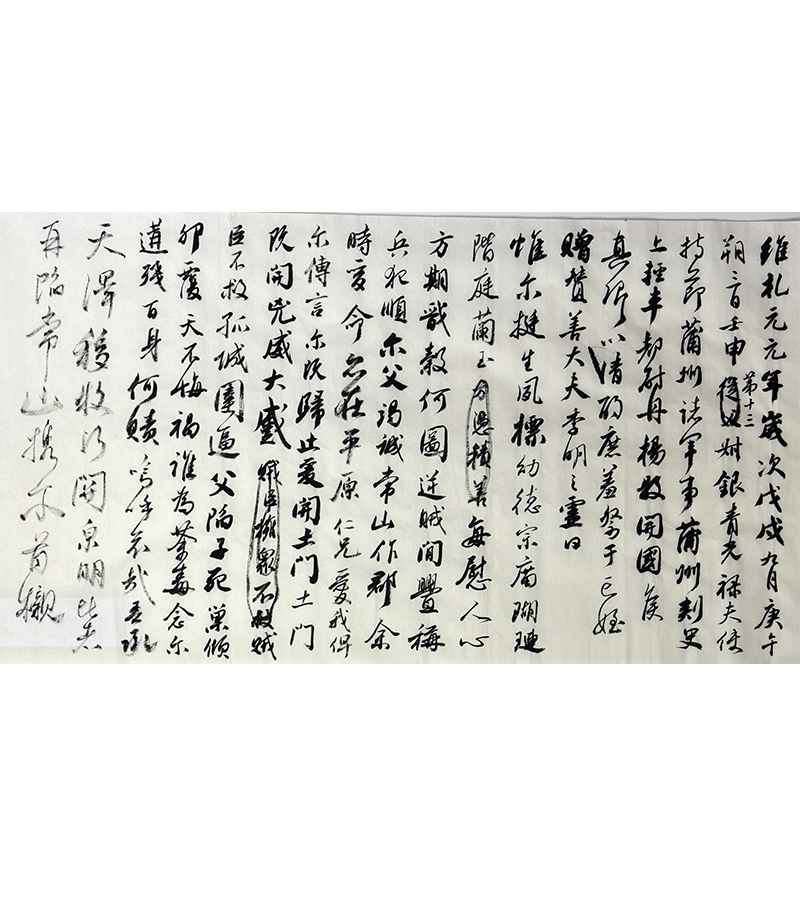 維乹元元年歲次戊戌九月庚午
朔三日壬申第十三從父叔銀青光禄夫使
持節蒲州諸軍事蒲州刺史
上輕車都尉丹楊縣開國侯
真卿以清酌庶羞祭于亡姪
贈贊善大夫季明之靈曰
惟尔挺生夙標幼德宗廟瑚璉
階庭蘭玉方憑積善每慰人心
方期戩穀何圖逆賊間舋稱
兵犯順尔父竭誠常山作郡余
時受命亦在平原仁兄愛我俾
尔傳言尔既歸止爰開土門土門
既開兇威大蹙賊臣擁衆不救賊
臣不救孤城圍逼父陷子死巢傾
卵覆天不悔禍誰為荼毒念尔
遘殘百身何贖嗚呼哀哉吾承
天澤移牧河關泉明比者
再陷常山携尔首櫬